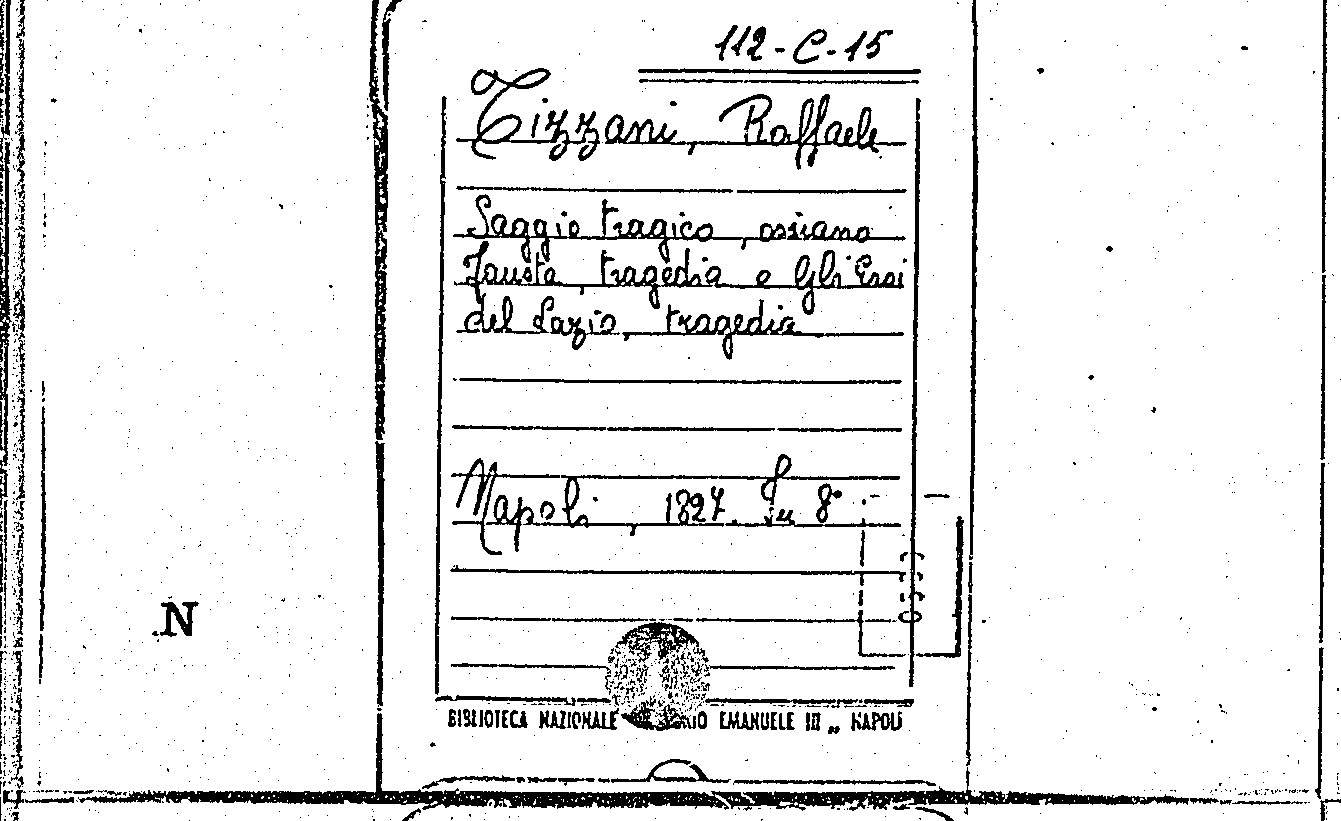 112-C-15
Tizzani, Raffaele
Saggio tragico, ossiano
Fausta, tragedia e Gli Eroi
del Lazio, tragedia
Napoli, 1827. In 8°
N
BIBLIOTECA NAZIONALE EMANUELE III „ NAPOLI